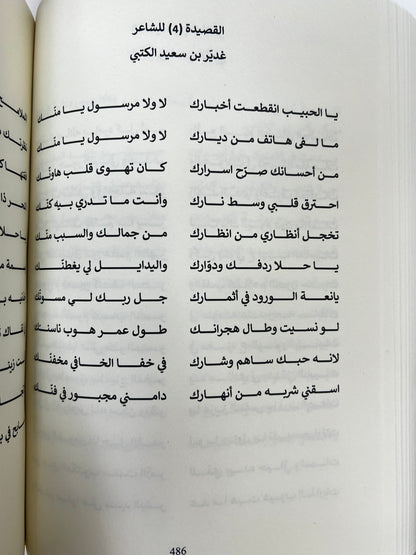 القصيدة (4) للشاعر
غديّر بن سعيد الكتبي
يا الحبيب انقطعت أخبارك لا ولا مرسول يا منّك
ما لفى هاتف من ديارك لا ولا مرسول يا منّك
من أحسانك صرّح اسرارك كان تهوى قلب هاونّك
احترق قلبي وسط نارك وأنت ما تدري بيه كنّك
تخجل أنظاري من انظارك من جمالك والسبب منّك
يا حلا ردفك ودوّارك واليدايل لي يغطنّك
يانعة الورود في أثمارك جل ربك لي مسونّك
لو نسيت وطال هجرانك طول عمر هوب ناسنك
لانه حبك ساهم وشارك في خفا الخافي مخفنّك
اسقني شربه من أنهارك دامني مجبور في فنّك
486